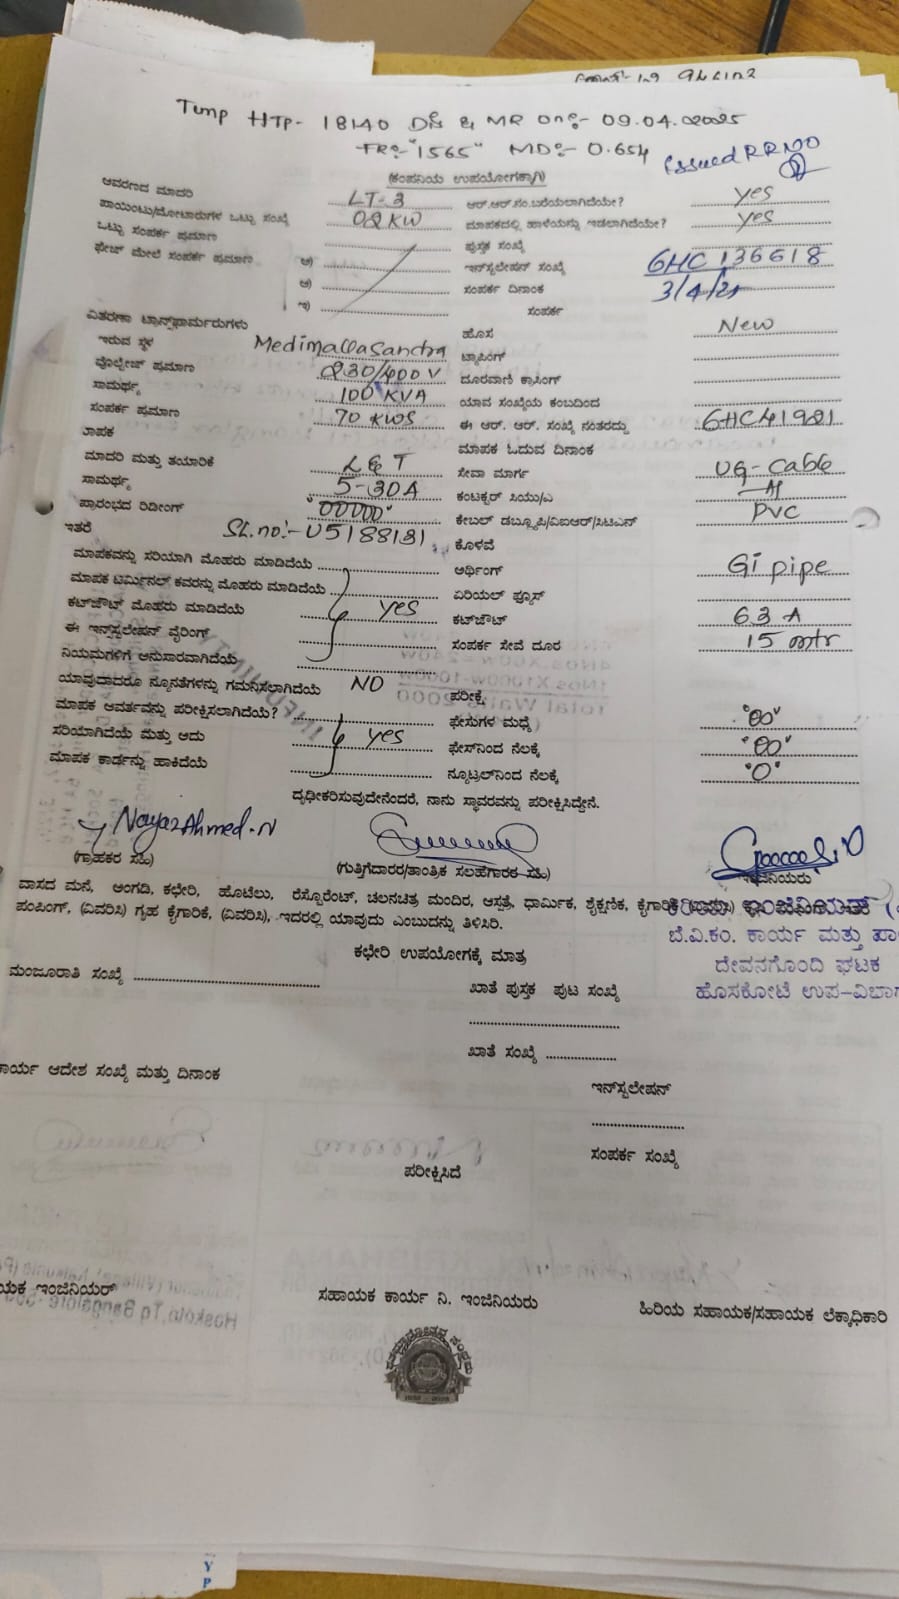 Temp HTP- 18140 DS & MR on:- 09.04.2025
FR:- "1565" MD:- 0.654
Issued RRNO
(ಕಂಪನಿಯ ಉಪಯೋಗಕ್ಕಾಗಿ)
ಆವರಣದ ಮಾದರಿ LT-3 ಆರ್.ಆರ್.ನಂ.ಬರೆಯಲಾಗಿದೆಯೇ? yes
ಪಾಯಿಂಟು/ಮೋಟಾರುಗಳ ಒಟ್ಟು ಸಂಖ್ಯೆ 02 KW ಮಾಪಕದಲ್ಲಿ ಹಾಳೆಯನ್ನು ಇಡಲಾಗಿದೆಯೇ? yes
ಒಟ್ಟು ಸಂಪರ್ಕ ಪ್ರಮಾಣ ಪುಸ್ತಕ ಸಂಖ್ಯೆ
ಫೇಜ್ ಮೇಲೆ ಸಂಪರ್ಕ ಪ್ರಮಾಣ ಅ) ಇನ್‌ಸ್ಟಲೇಷನ್ ಸಂಖ್ಯೆ 6HC136618
ಆ) ಸಂಪರ್ಕ ದಿನಾಂಕ 3/4/25
ಇ) ಸಂಪರ್ಕ
ವಿತರಣಾ ಟ್ರಾನ್ಸ್‌ಫಾರ್ಮರುಗಳು ಹೊಸ New
ಇರುವ ಸ್ಥಳ Medimallasandra ಟ್ಯಾಪಿಂಗ್
ವೊಲ್ಟೇಜ್ ಪ್ರಮಾಣ 230/400 V ದೂರವಾಣಿ ಕ್ರಾಸಿಂಗ್
ಸಾಮರ್ಥ್ಯ 100 KVA ಯಾವ ಸಂಖ್ಯೆಯ ಕಂಬದಿಂದ
ಸಂಪರ್ಕ ಪ್ರಮಾಣ 70 KWS ಈ ಆರ್. ಆರ್. ಸಂಖ್ಯೆ ನಂತರದ್ದು 6HC41921
ಮಾಪಕ ಮಾಪಕ ಓದುವ ದಿನಾಂಕ
ಮಾದರಿ ಮತ್ತು ತಯಾರಿಕೆ L&T ಸೇವಾ ಮಾರ್ಗ UG-Cable
ಸಾಮರ್ಥ್ಯ 5-30A ಕಂಟಕ್ಟರ್ ಸಿಯು/ಎ Al
ಪ್ರಾರಂಭದ ರಿಡೀಂಗ್ "00000" ಕೇಬಲ್ ಡಬ್ಲ್ಯೂಪಿ/ವಿಐಆರ್/ಸಿಟಿಎನ್ PVC
ಇತರೆ Sl.no:- U5188131 ಕೊಳವೆ
ಮಾಪಕವನ್ನು ಸರಿಯಾಗಿ ಮೊಹರು ಮಾಡಿದೆಯೆ ಅರ್ಥಿಂಗ್ Gi pipe
ಮಾಪಕ ಟರ್ಮಿನಲ್ ಕವರನ್ನು ಮೊಹರು ಮಾಡಿದೆಯೆ ಏರಿಯಲ್ ಫ್ಯೂಸ್
ಕಟ್‌ಔಟ್ ಮೊಹರು ಮಾಡಿದೆಯೆ yes ಕಟ್‌ಔಟ್ 63 A
ಈ ಇನ್‌ಸ್ಟಲೇಷನ್ ವೈರಿಂಗ್ ಸಂಪರ್ಕ ಸೇವೆ ದೂರ 15 mtr
ನಿಯಮಗಳಿಗೆ ಅನುಸಾರವಾಗಿದೆಯೆ
ಯಾವುದಾದರೂ ನ್ಯೂನತೆಗಳನ್ನು ಗಮನಿಸಲಾಗಿದೆಯೆ NO ಪರೀಕ್ಷೆ
ಮಾಪಕ ಆವರ್ತವನ್ನು ಪರೀಕ್ಷಿಸಲಾಗಿದೆಯೆ? ಫೇಸುಗಳ ಮಧ್ಯೆ "00"
ಸರಿಯಾಗಿದೆಯೆ ಮತ್ತು ಅದು yes ಫೇಸ್‌ನಿಂದ ನೆಲಕ್ಕೆ "00"
ಮಾಪಕ ಕಾರ್ಡನ್ನು ಹಾಕಿದೆಯೆ ನ್ಯೂಟ್ರಲ್‌ನಿಂದ ನೆಲಕ್ಕೆ "0"
ದೃಢೀಕರಿಸುವುದೇನೆಂದರೆ, ನಾನು ಸ್ಥಾವರವನ್ನು ಪರೀಕ್ಷಿಸಿದ್ದೇನೆ.
Nayaz Ahmed.N
(ಗ್ರಾಹಕರ ಸಹಿ) (ಗುತ್ತಿಗೆದಾರರ/ತಾಂತ್ರಿಕ ಸಲಹೆಗಾರರ ಸಹಿ) ಇಂಜಿನಿಯರು
ವಾಸದ ಮನೆ, ಅಂಗಡಿ, ಕಛೇರಿ, ಹೊಟೆಲು, ರೆಸ್ಟೊರೆಂಟ್, ಚಲನಚಿತ್ರ ಮಂದಿರ, ಆಸ್ಪತ್ರೆ, ಧಾರ್ಮಿಕ, ಶೈಕ್ಷಣಿಕ, ಕೈಗಾರಿಕೆ
ಪಂಪಿಂಗ್, (ವಿವರಿಸಿ) ಗೃಹ ಕೈಗಾರಿಕೆ, (ವಿವರಿಸಿ), ಇದರಲ್ಲಿ ಯಾವುದು ಎಂಬುದನ್ನು ತಿಳಿಸಿರಿ.
ಬೆ.ವಿ.ಕಂ. ಕಾರ್ಯ ಮತ್ತು ಪಾ
ದೇವನಗೊಂದಿ ಘಟಕ
ಹೊಸಕೋಟೆ ಉಪ-ವಿಭಾಗ
ಕಛೇರಿ ಉಪಯೋಗಕ್ಕೆ ಮಾತ್ರ
ಮಂಜೂರಾತಿ ಸಂಖ್ಯೆ ಖಾತೆ ಪುಸ್ತಕ ಪುಟ ಸಂಖ್ಯೆ
ಖಾತೆ ಸಂಖ್ಯೆ
ಕಾರ್ಯ ಆದೇಶ ಸಂಖ್ಯೆ ಮತ್ತು ದಿನಾಂಕ
ಇನ್‌ಸ್ಟಲೇಷನ್
ಸಂಪರ್ಕ ಸಂಖ್ಯೆ
ಪರೀಕ್ಷಿಸಿದೆ
ಯಕ ಇಂಜಿನಿಯರ್ ಸಹಾಯಕ ಕಾರ್ಯ ನಿ. ಇಂಜಿನಿಯರು ಹಿರಿಯ ಸಹಾಯಕ/ಸಹಾಯಕ ಲೆಕ್ಕಾಧಿಕಾರಿ
Y
P